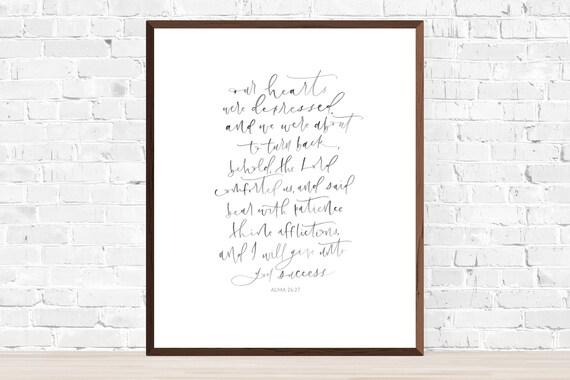 our hearts
were depressed,
and we were about
to turn back,
behold, the Lord
comforted us, and said
bear with patience
thine afflictions,
and I will give unto
you success
ALMA 26:27